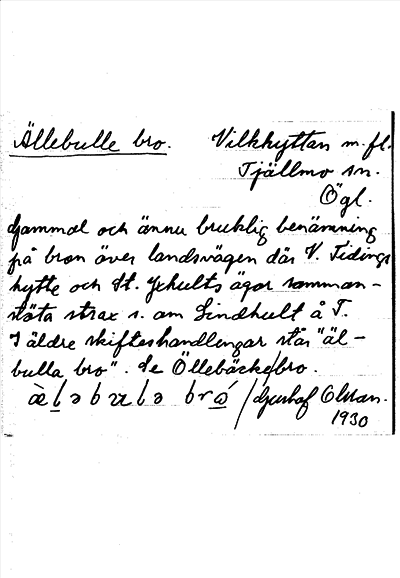 Ällebulle bro. Vilkhyttan m. fl.
Tjällmo sn.
Ögl.
Gammal och ännu bruklig benämning
på bron över landsvägen där V. Tidings
hytte och St. Yxhults ägor samman-
stöta strax s. om Lindhult å T.
I äldre skifteshandlingar står "äl-
bulla bro". Se Öllebäcke bro.
Olsson.
1930